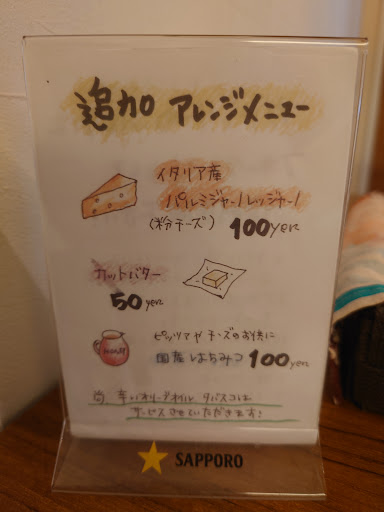 追加 アレンジメニュー
イタリア産
パルミジャーノレッジャーノ
(粉チーズ) 100yen
カットバター
50yen
HONEY
ピッツァやチーズのお供に
国産はちみつ 100yen
尚、辛いオリーブオイル タバスコは
サービスさせていただきます!
SAPPORO